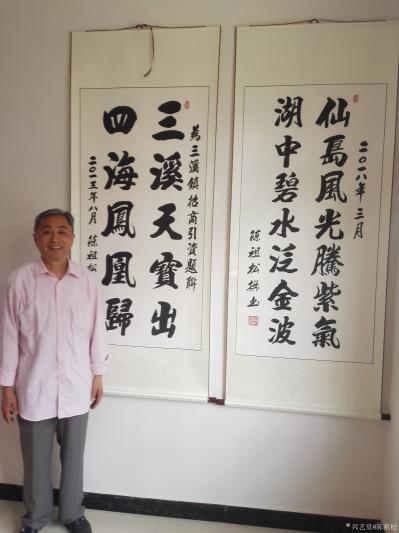 二〇一八年三月
仙島風光騰紫氣
湖中碧水泛金波
陳祖松撰书
為三溪鎮招商引資題聯
三溪天寶出
四海鳳凰歸
二〇一三年八月 陳祖松
兴艺堂@陈祖松